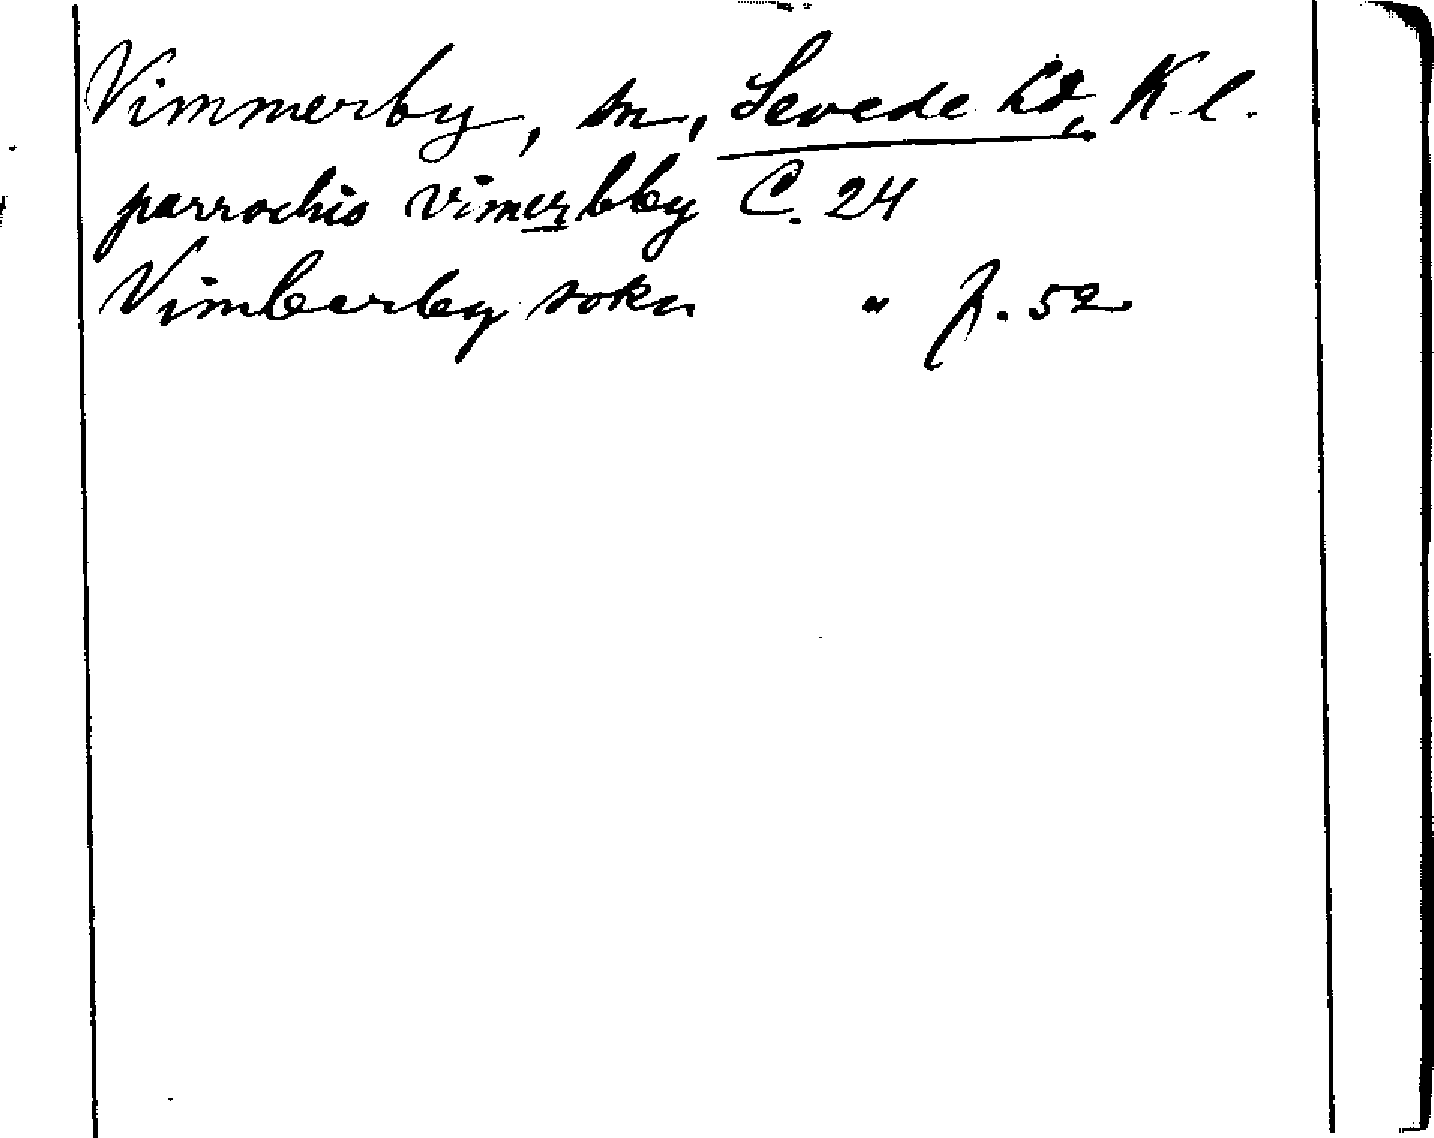 Vimmerby, sn, Sevede hd, K-l.
parrochio vimerbby C. 24
Vimberby sokn " f. 52